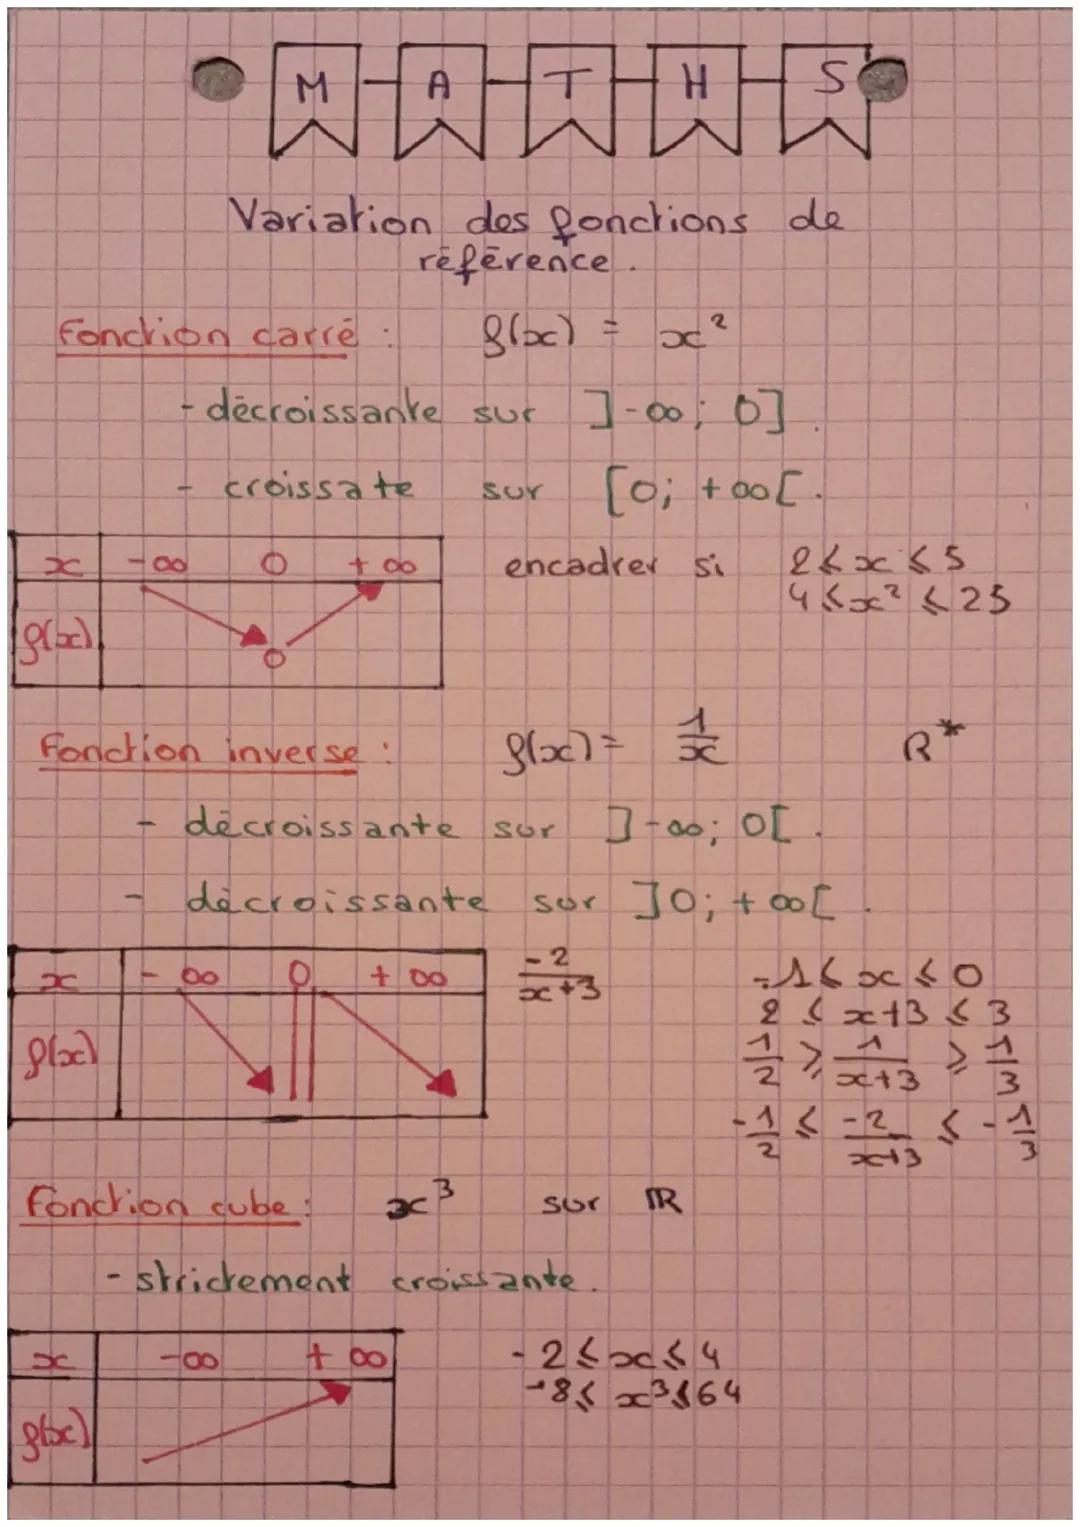 M A T H S
Variation des fonctions de
référence.
Fonction carré : f(x) = x²
- décroissante sur ]-∞; 0].
- croissate sur [0; +∞[.
x -∞ 0 +∞
f(x) 0
encadrer si 2 ≤ x ≤ 5
4 ≤ x² ≤ 25
Fonction inverse : f(x) = 1/x R*
- décroissante sur ]-∞; 0[.
- décroissante sur ]0; +∞[.
x -∞ 0 +∞
f(x)
-2/(x+3)
-1 ≤ x ≤ 0
2 ≤ x+3 ≤ 3
1/2 ≥ 1/(x+3) ≥ 1/3
-1/2 ≤ -2/(x+3) ≤ -1/3
Fonction cube : x³ sur ℝ
- strictement croissante.
x -∞ +∞
f(x)
-2 ≤ x ≤ 4
-8 ≤ x³ ≤ 64